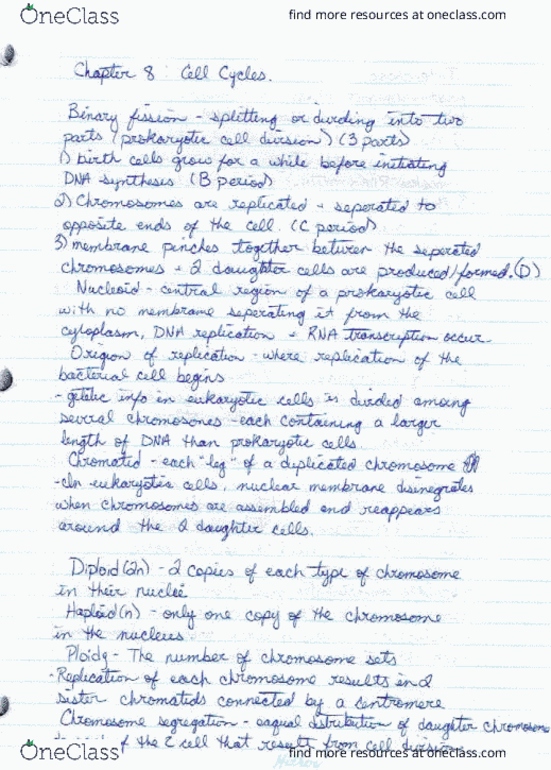 OneClass
find more resources at oneclass.com
Chapter 8 : Cell Cycles.
Binary fission - splitting or dividing into two
parts (prokaryotic cell division) (3 parts)
1) birth cells grow for a while before initiating
DNA synthesis (B period)
2) Chromosomes are replicated + seperated to
opposite ends of the cell. (C period)
3) membrane pinches together between the seperated
chromosomes + 2 daughter cells are produced/formed. (D)
Nucleoid - central region of a prokaryotic cell
with no membrane seperating it from the
cytoplasm, DNA replication + RNA transcription occur.
Origion of replication - where replication of the
bacterial cell begins
- info in eukaryotic cells is divided among
several chromosones - each containing a larger
length of DNA than prokaryotic cells.
Chromatid - each "leg" of a duplicated chromosome
- In eukaryotic cells, nuclear membrane disinegrates
when chromosomes are assembled and reappears
around the 2 daughter cells.
Diploid (2n) - 2 copies of each type of chromosome
in their nuclei
Haploid (n) - only one copy of the chromosome
in the nucleus
Ploidy - The number of chromosome sets
- Replication of each chromosome results in 2
sister chromatids connected by a centromere
Chromosome segregation - eaqual distribution of daughter chromosome
of the 2 cell that result from cell division
OneClass
find more resources at oneclass.com